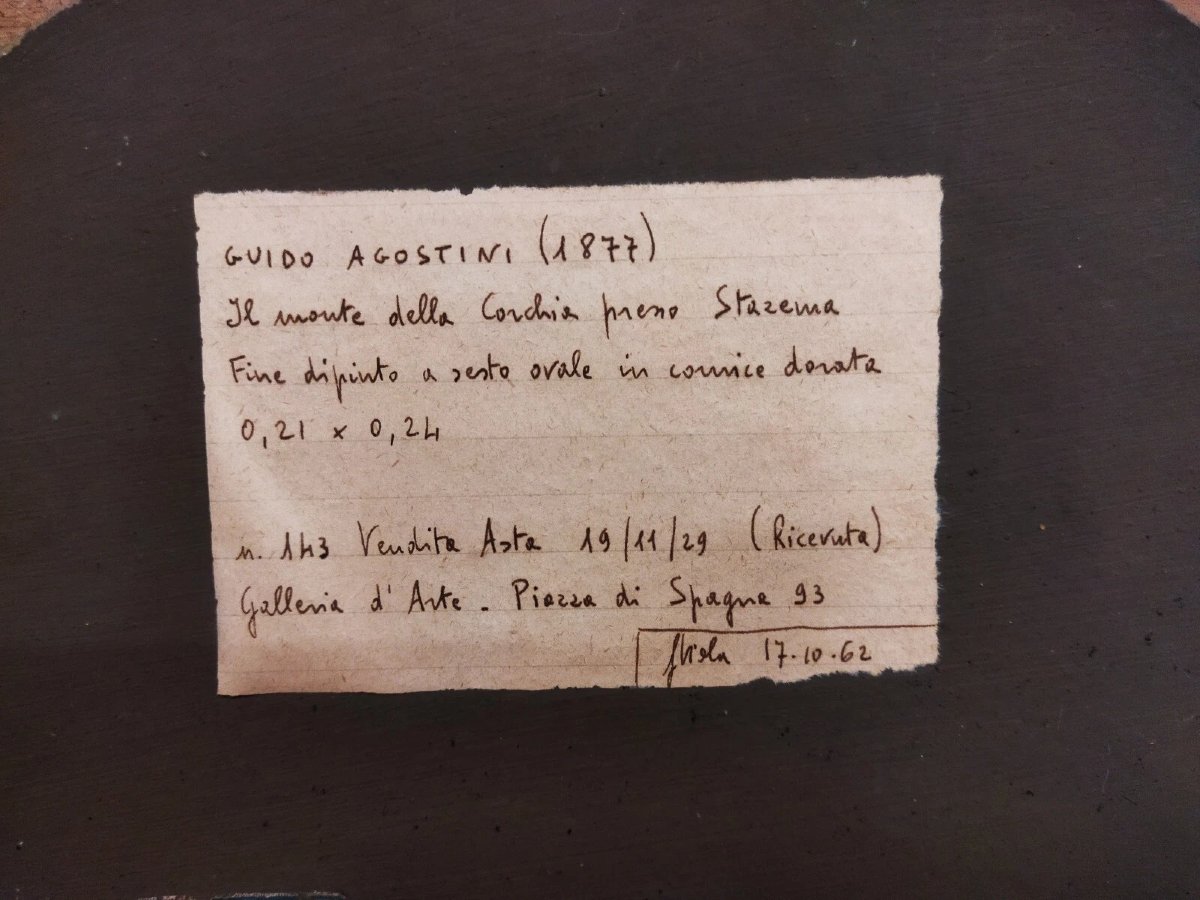 GUIDO AGOSTINI (1877)
Il monte della Corchia presso Stazema
Fine dipinto a sesto ovale in cornice dorata
0,21 x 0,24
n. 143 Vendita Asta 19/11/29 (Ricevuta)
Galleria d'Arte - Piazza di Spagna 93
17.10.62